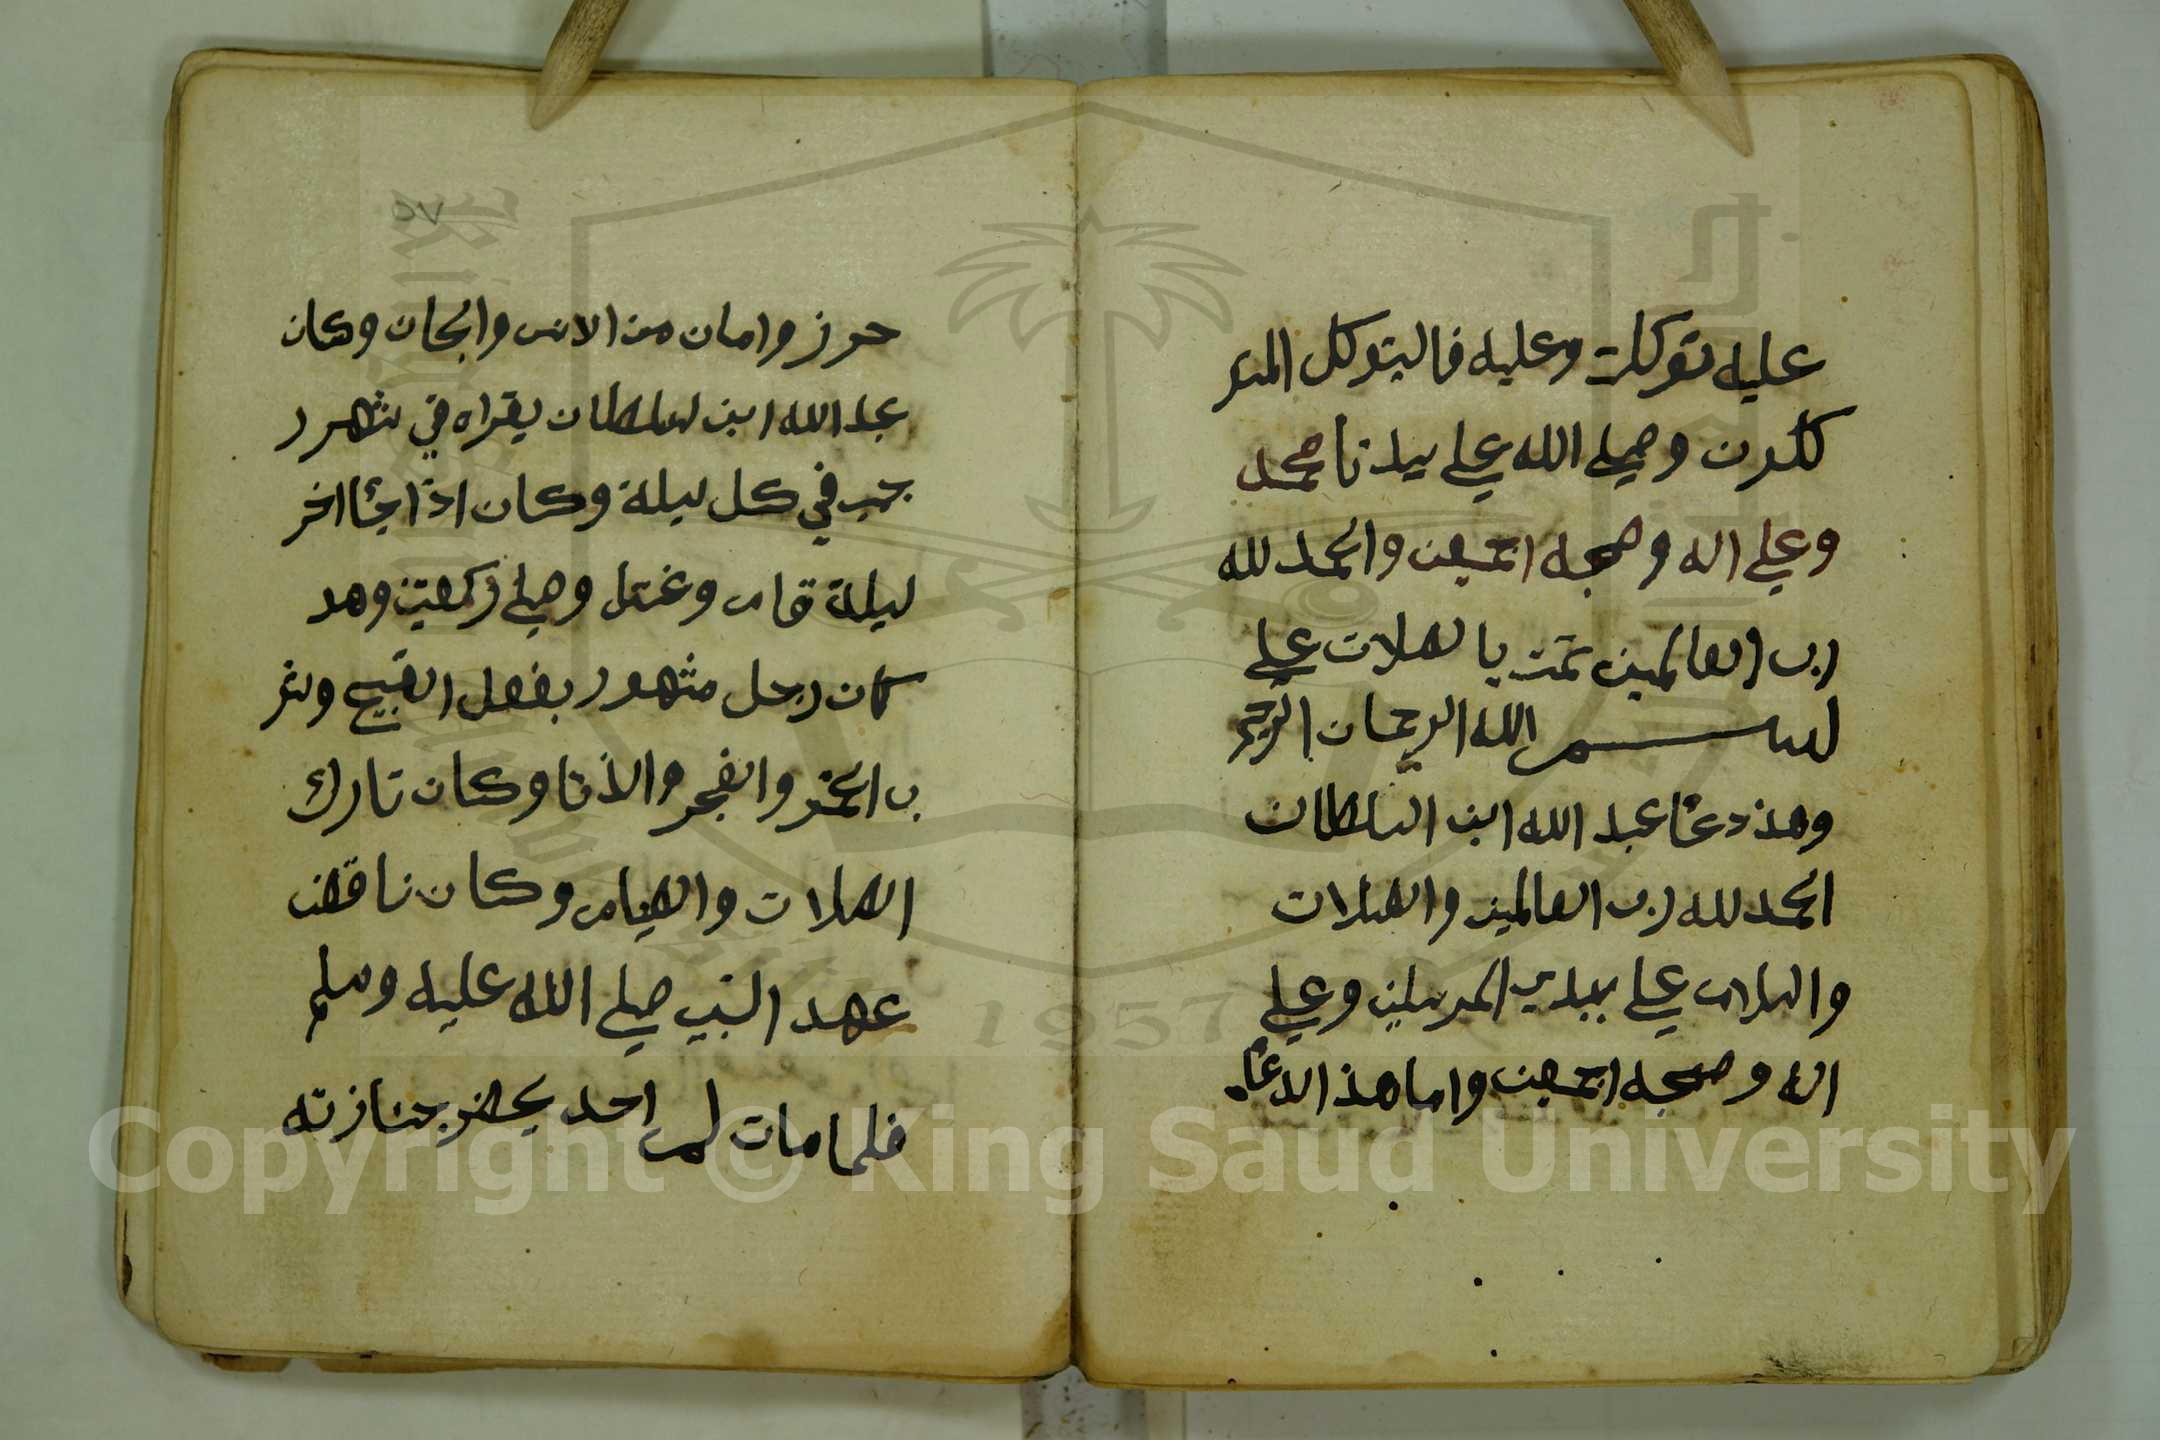 عليه توكلت وعليه فاليتوكل المتو
كلون وصلي الله علي سيدنا محمد
وعلي اله وصحبه اجمعين والحمد لله
رب العالمين تمت بالصلات علي
بسم الله الرحمان الرحيم
وهذ دعا عبد الله ابن السلطان
الحمد لله رب العالمين والصلات
والسلام علي سيدي المرسلين وعلي
اله وصحبه اجمعين واما هذ الدعا
٥٧
حرز وامان من الانس والجان وكان
عبد الله ابن سلطان يقراه في شهر ر
جب في كل ليلة وكان اذا جا اخر
ليلة قام وغتسل وصلي ركعتين وهد
كان رجل مشهور بفعل القبيح وشر
ب الخمر والفجر والزنا وكان تارك
الصلات والصيام وكان ناقض
عهد النبي صلي الله عليه وسلم
فلما مات لم احد يحضر جنازته
King Saud University
1957
Copyright © King Saud University